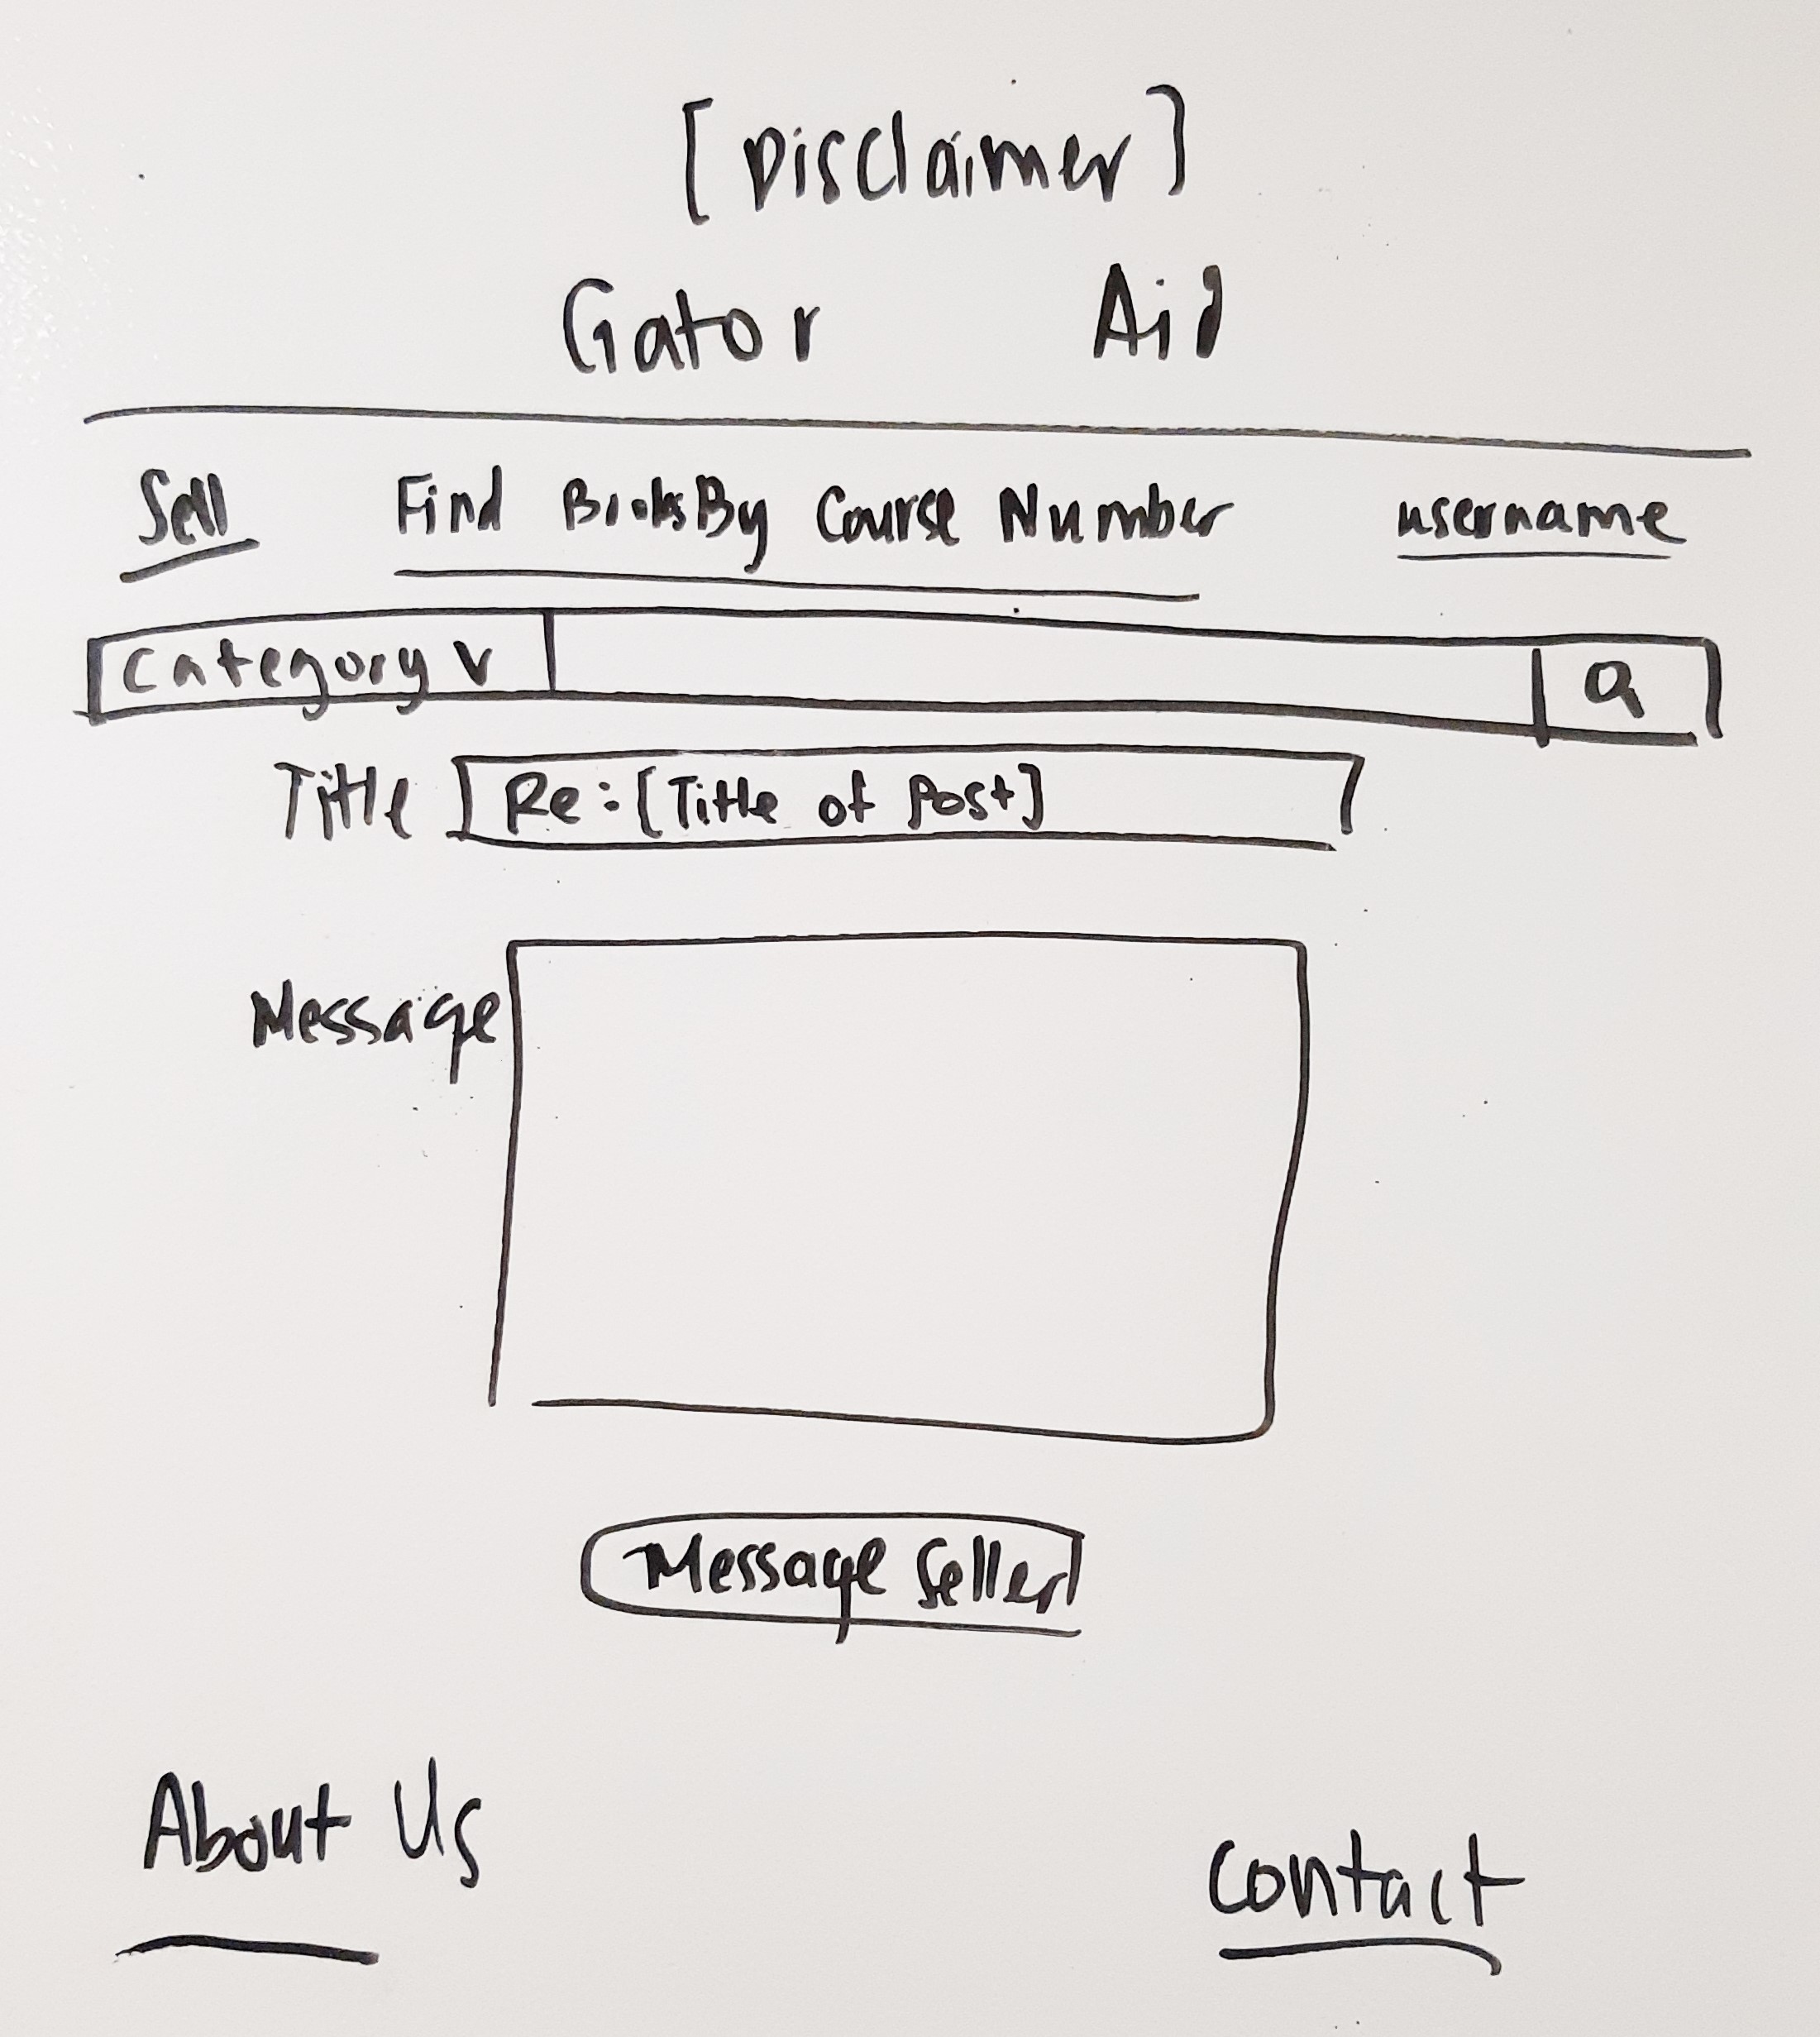 [Disclaimer]
Gator Aid
Sell Find Books By Course Number username
Category v Q
Title Re: [Title of Post]
Message
Message Seller
About Us Contact